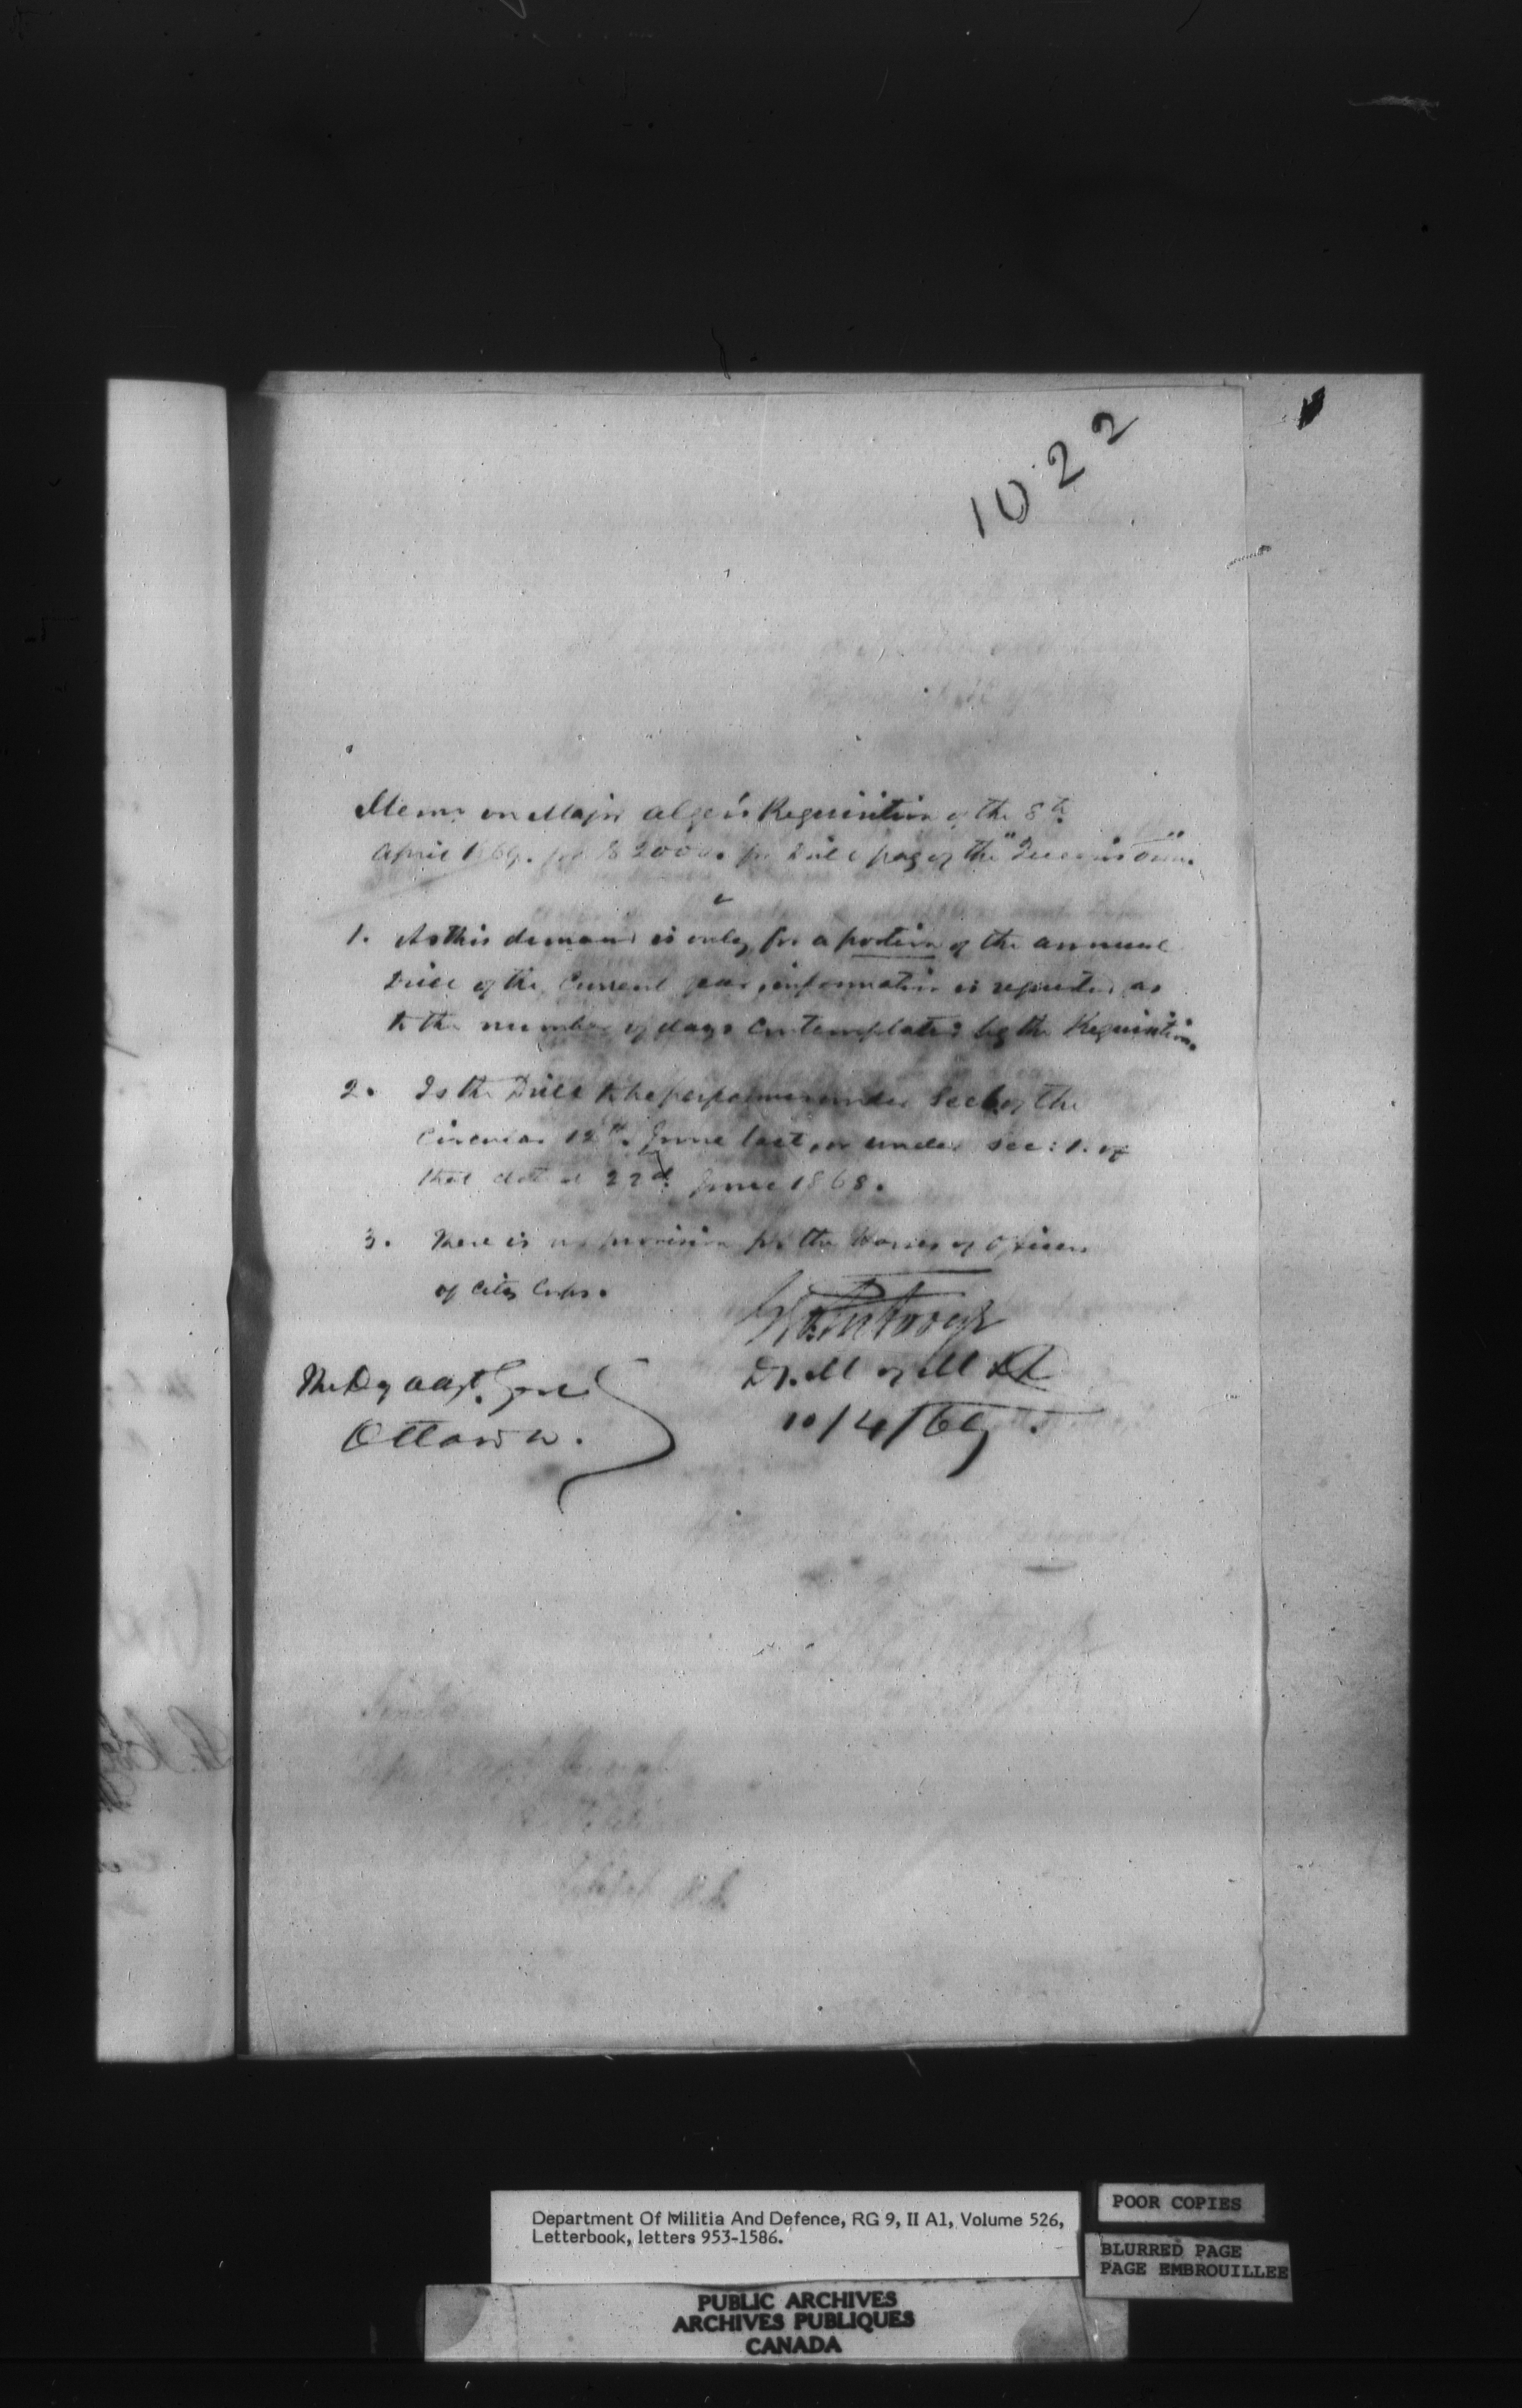 1022
Memo on Major Alger's Requisition of the 8th
April 1869. for $2000. for Drill pay of the "Queen's Own".
1. As this demand is only for a portion of the annual
Drill of the Current year, information is requested as
to the number of days contemplated by the Requisition.
2. Is the Drill to be performed under Sec 6 of the
Circular 12th June last, or under Sec: 1. of
that dated 22d June 1868.
3. There is no provision for the Horses of Officers
of City Corps.
Dy. M of M & D
10/4/69.
The Dy Adjt. Genl
Ottawa.
Department Of Militia And Defence, RG 9, II A1, Volume 526,
Letterbook, letters 953-1586.
POOR COPIES
BLURRED PAGE
PAGE EMBROUILLEE
PUBLIC ARCHIVES
ARCHIVES PUBLIQUES
CANADA